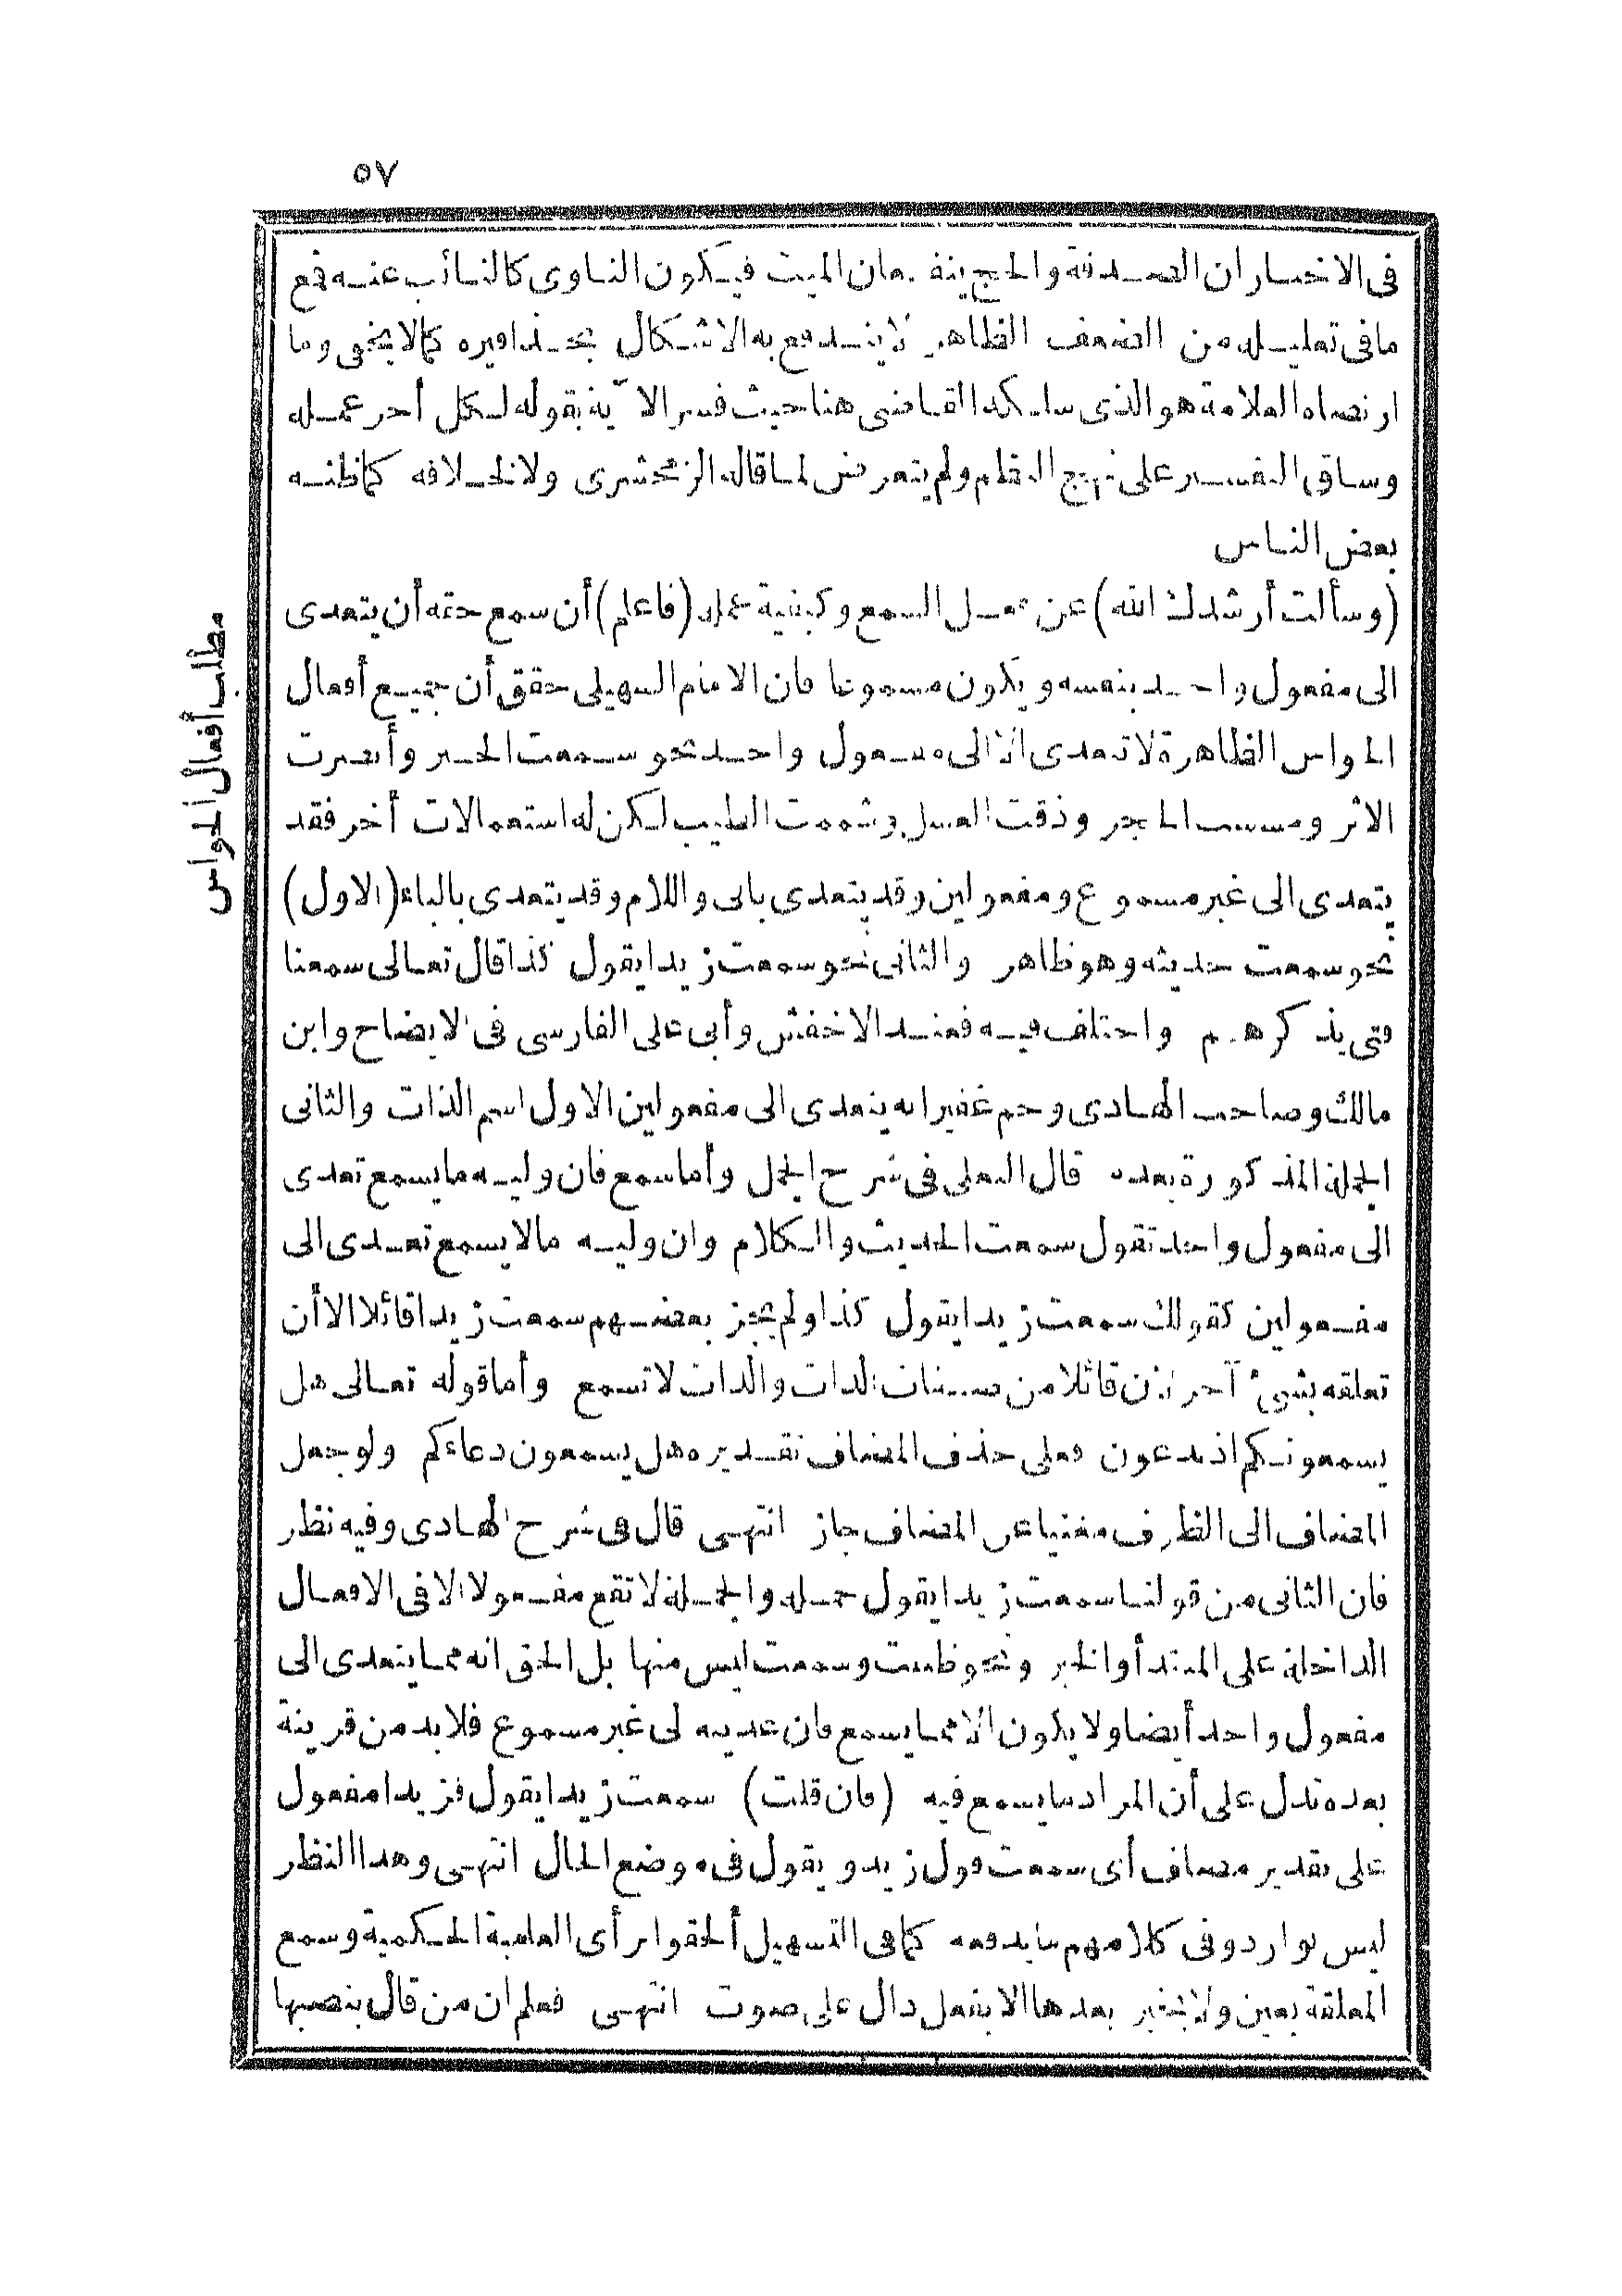 ٥٧
فى الاخبار ان الصدقة والحج ينفعان الميت فيكون الناوى كالنائب عنه فمع
مافى تعليله من الضعف الظاهر لا يندفع به الاشكال بحذافيره كمالا يخفى وما
ارتضاه العلامة هو الذى سلكه القاضى هنا حيث فسر الآية بقوله لكل أجر عمله
وساق التفسير على نهج النظم ولم يتعرض لما قاله الزمخشرى ولا لخلافه كما ظنه
بعض الناس
(وسألت أرشدك الله) عن السمع وكيفية عمله (فاعلم) أن سمع حقه أن يتعدى
الى مفعول واحد بنفسه ويكون مسموعا فان الامام السهيلى حقق أن جميع أفعال
الحواس الظاهرة لا تتعدى الا الى مفعول واحد نحو سمعت الخبر وأبصرت
الاثر ومسست الحجر وذقت العسل وشممت الطيب لكن له استعمالات أخر فقد
يتعدى الى غير مسموع ومفعولين وقد يتعدى بالى واللام وقد يتعدى بالباء (الاول)
نحو سمعت حديثه وهو ظاهر والثانى نحو سمعت زيدا يقول كذا قال تعالى سمعنا
فتى يذكرهم واختلف فيه فعند الاخفش وأبى على الفارسى فى الايضاح وابن
مالك وصاحب الهادى وجم غفير انه يتعدى الى مفعولين الاول اسم الذات والثانى
الجملة المذكورة بعده قال البعلى فى شرح الجمل وأما سمع فان وليه ما يسمع تعدى
الى مفعول واحد تقول سمعت الحديث والكلام وان وليه مالا يسمع تعدى الى
مفعولين كقولك سمعت زيدا يقول كذا ولم يجز بعضهم سمعت زيدا قائلا الا أن
تعلقه بشئ آخر لان قائلا من صفات الذات والذات لا تسمع وأما قوله تعالى هل
يسمعونكم اذ تدعون فعلى حذف المضاف تقديره هل يسمعون دعاءكم ولو جعل
المضاف الى الظرف مغنيا عن المضاف جاز انتهى قال فى شرح الهادى وفيه نظر
فان الثانى من قولنا سمعت زيدا يقول جملة والجملة لا تقع مفعولا الا فى الافعال
الداخلة على المبتدأ والخبر ونحو ظننت وسمعت ليس منها بل الحق انه مما يتعدى الى
مفعول واحد أيضا ولا يكون الا مما يسمع فان عديته الى غير مسموع فلابد من قرينة
بعده تدل على أن المراد ما يسمع فيه (فان قلت) سمعت زيدا يقول فزيدا مفعول
على تقدير مضاف أى سمعت قول زيد ويقول فى موضع الحال انتهى وهذا النظر
ليس بوارد وفى كلامهم ما يدفعه كما فى التسهيل ألحقوا برأى العلمية الحكمية وسمع
المعلقة بعين ولا يخبر بعدها الا بفعل دال على صوت انتهى فعلم ان من قال بنصبها
مطلب أفعال الحواس